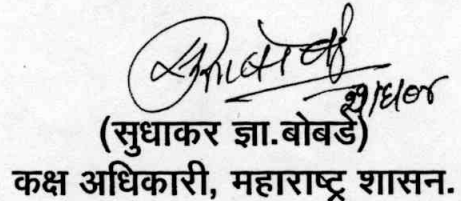 (सुधाकर ज्ञा.बोबडे)
कक्ष अधिकारी, महाराष्ट्र शासन.